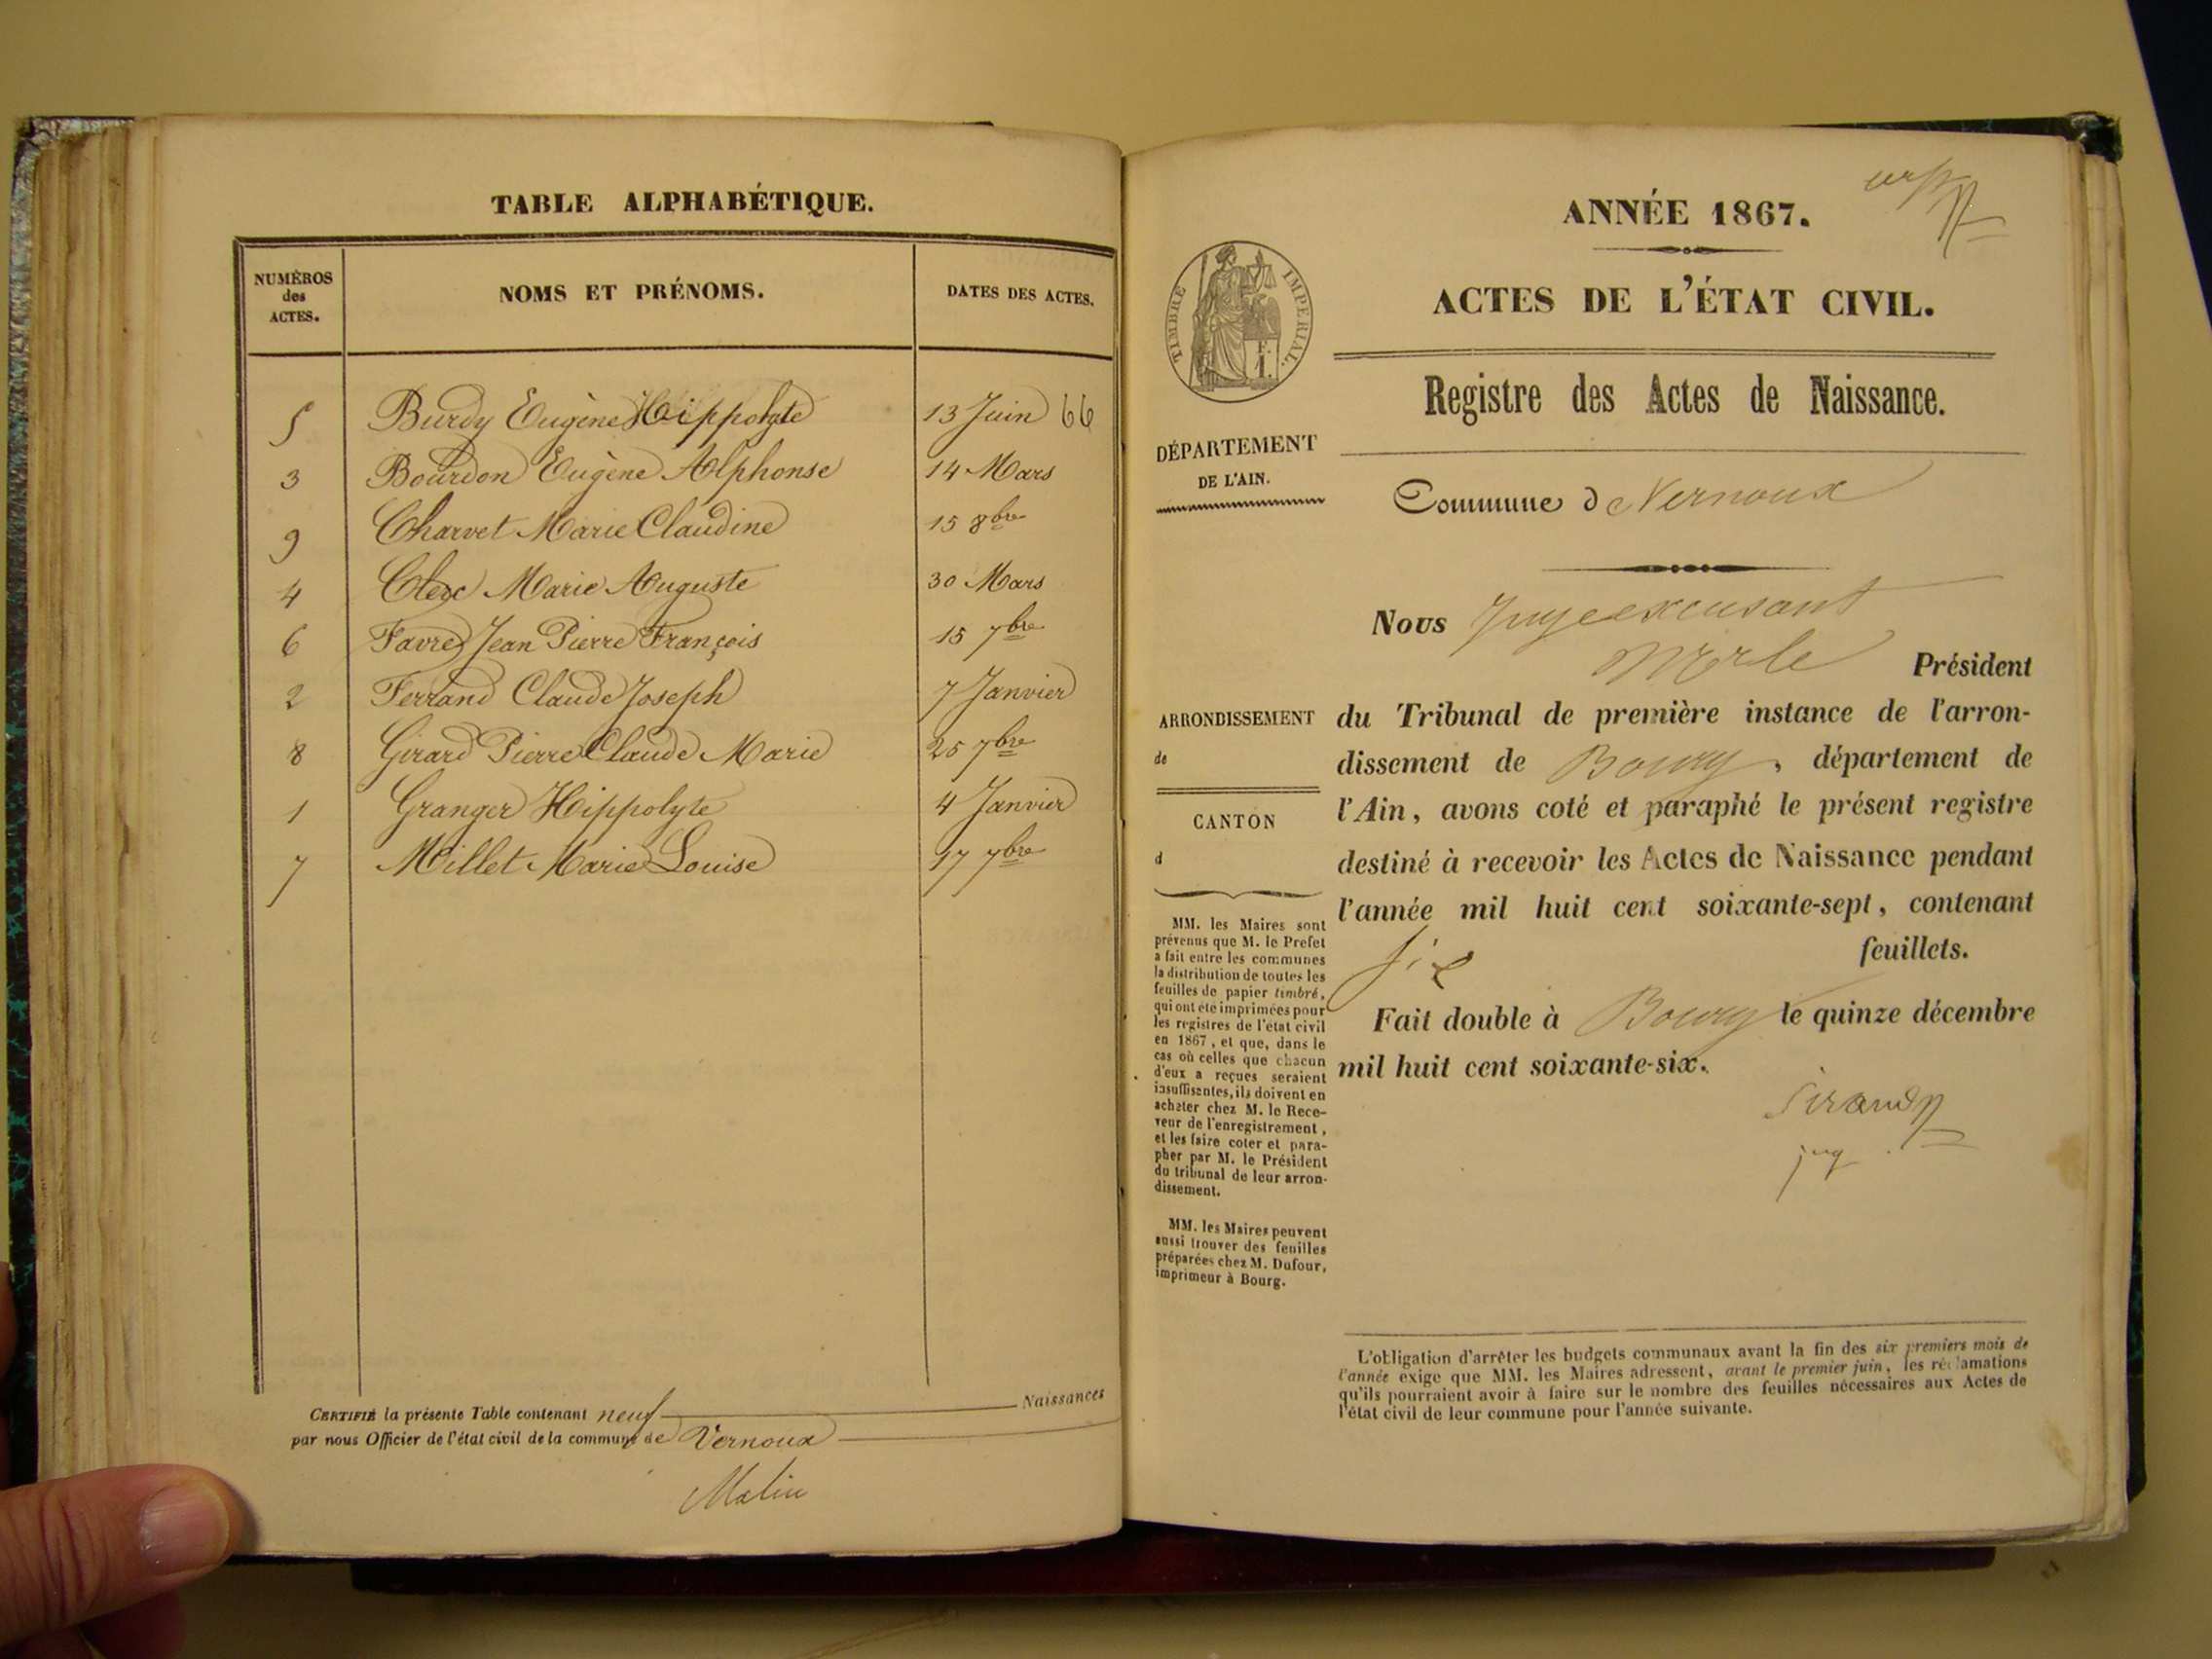 TABLE ALPHABÉTIQUE.
NUMÉROS des ACTES. NOMS ET PRÉNOMS. DATES DES ACTES.
5 Burdy Eugène Hippolyte 13 Juin 66
3 Bourdon Eugène Alphonse 14 Mars
9 Charvet Marie Claudine 15 8bre
4 Clerc Marie Auguste 30 Mars
6 Favre Jean Pierre François 15 7bre
2 Ferrand Claude Joseph 7 Janvier
8 Girard Pierre Claude Marie 25 7bre
1 Granger Hippolyte 4 Janvier
7 Millet Marie Louise 17 7bre
CERTIFIÉ la présente Table contenant neuf Naissances
par nous Officier de l'état civil de la commune de Vernoux
ANNÉE 1867.
ACTES DE L'ÉTAT CIVIL.
TIMBRE IMPÉRIAL.
Registre des Actes de Naissance.
DÉPARTEMENT
DE L'AIN.
Commune d Vernoux
Nous Juge
Président
du Tribunal de première instance de l'arron-
dissement de Bourg, département de
l'Ain, avons coté et paraphé le présent registre
destiné à recevoir les Actes de Naissance pendant
l'année mil huit cent soixante-sept, contenant
six feuillets.
Fait double à Bourg le quinze décembre
mil huit cent soixante-six.
ARRONDISSEMENT
de
CANTON
d
MM. les Maires sont
prévenus que M. le Prefet
a fait entre les communes
la distribution de toutes les
feuilles de papier timbré,
qui ont été imprimées pour
les registres de l'état civil
en 1867, et que, dans le
cas où celles que chacun
d'eux a reçues seraient
insuffisantes, ils doivent en
acheter chez M. le Rece-
veur de l'enregistrement,
et les faire coter et para-
pher par M. le Président
du tribunal de leur arron-
dissement.
MM. les Maires peuvent
aussi trouver des feuilles
préparées chez M. Dufour,
imprimeur à Bourg.
L'obligation d'arrêter les budgets communaux avant la fin des six premiers mois de
l'année exige que MM. les Maires adressent, avant le premier juin, les réclamations
qu'ils pourraient avoir à faire sur le nombre des feuilles nécessaires aux Actes de
l'état civil de leur commune pour l'année suivante.